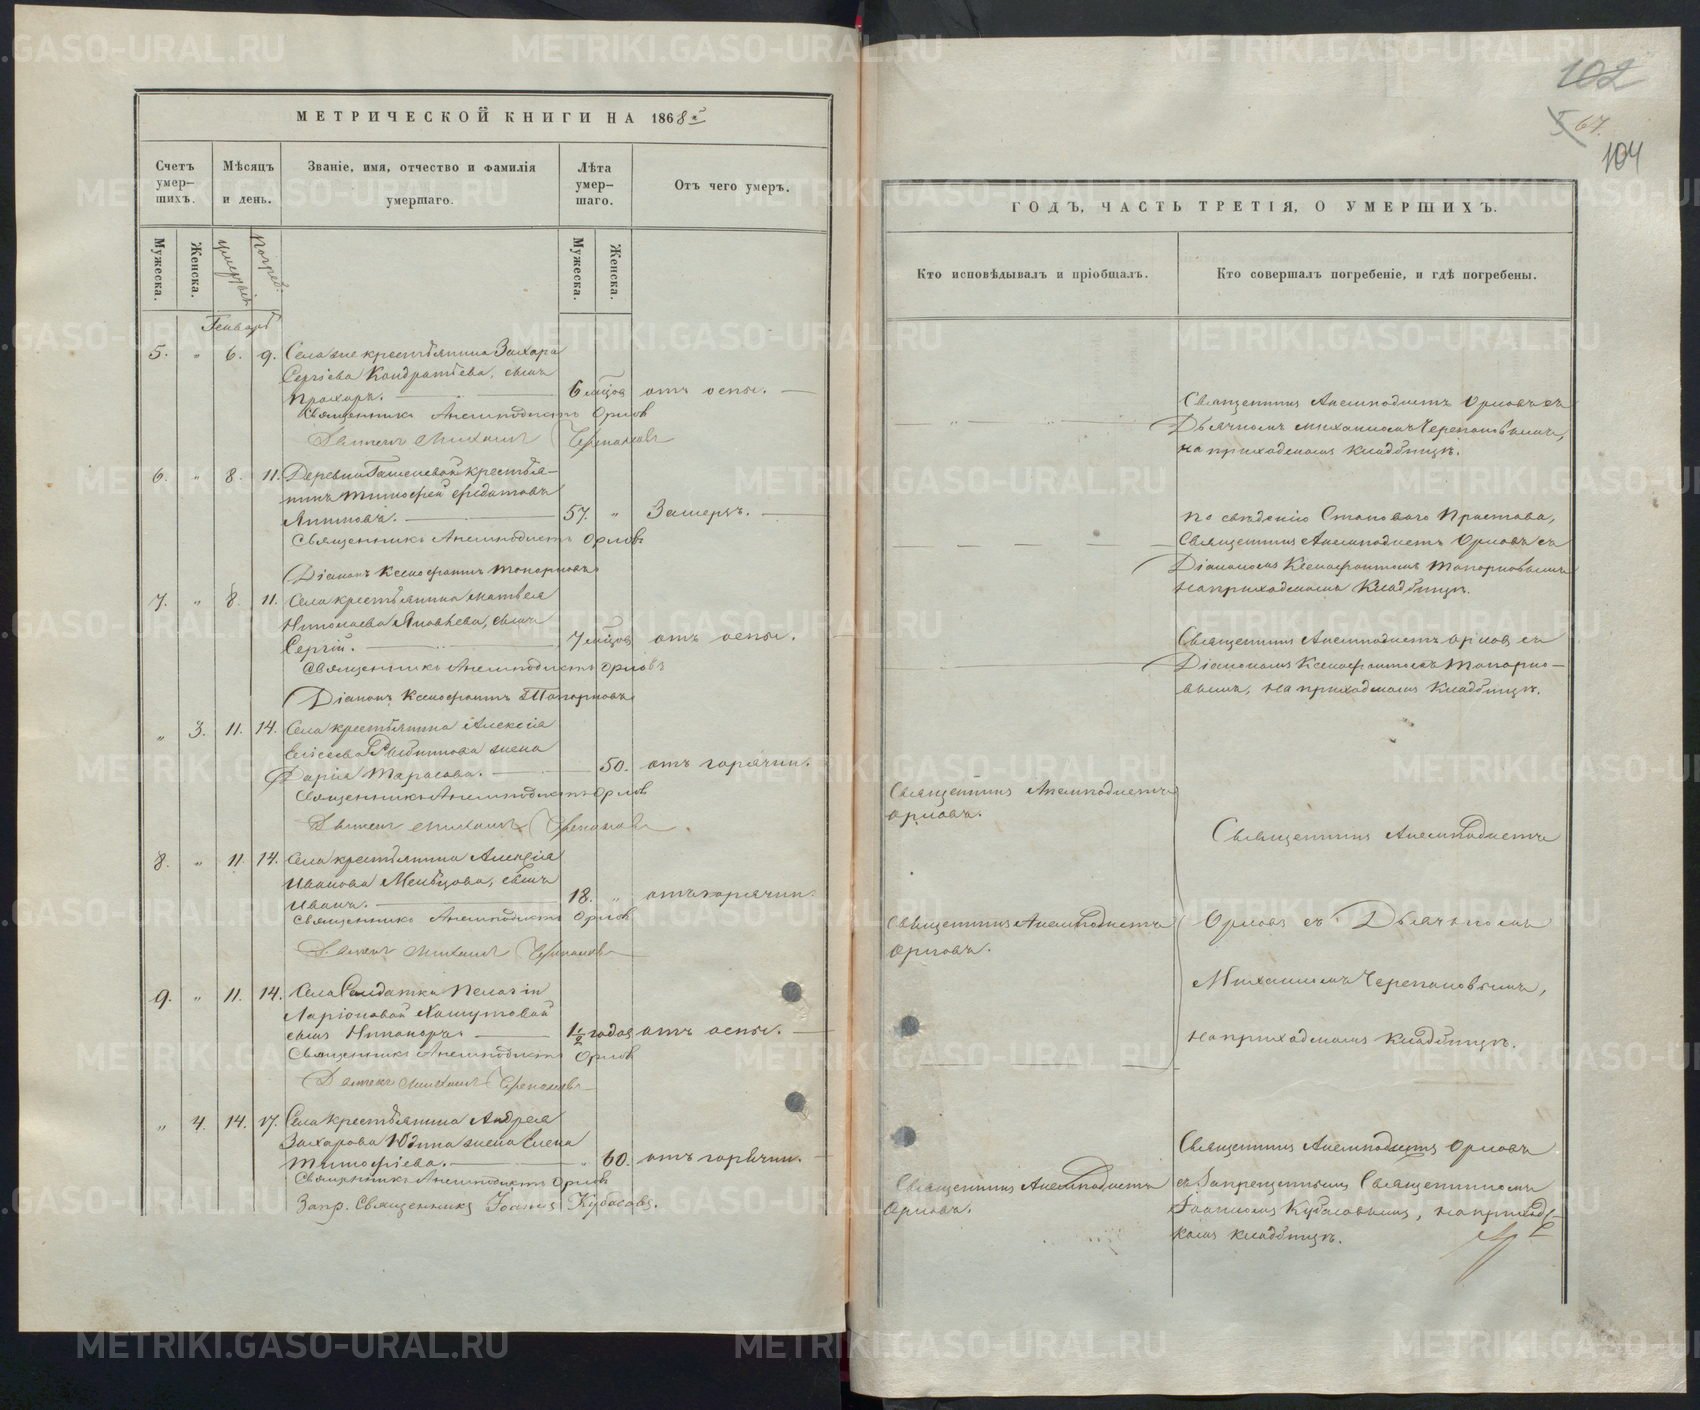 МЕТРИЧЕСКОЙ КНИГИ НА 1868й
Счетъ умер-шихъ.
Мѣсяцъ и день.
Званіе, имя, отчество и фамилія умершаго.
Лѣта умер-шаго.
Отъ чего умеръ.
Мужеска.
Женска.
Мужеска.
Женска.
Генварь
5. " 6. 9. Села же крестьянина Захара
Сергіева Кондратьева, сынъ
Прохоръ. 6 мѣсяцов отъ оспы.
Священникъ Анемподистъ Орлов
Дьячекъ Михаилъ Черепановъ
6. " 8. 11. Деревни крестья-
нинъ Тимофей Филатовъ
57. " Замерзъ.
Священникъ Анемподистъ Орловъ
Діаконъ Ксенофонтъ Топорковъ
7. " 8. 11. Села крестьянина Матвея
Николаева Яковлева, сынъ
Сергій. 7 мѣсяцов отъ оспы.
Священникъ Анемподистъ Орловъ
Діаконъ Ксенофонтъ Топорковъ
" 3. 11. 14. Села крестьянина Алексія
Елисеева жена
Дарія Тарасова. 50. отъ горячки.
Священникъ Анемподистъ Орлов
Дьячекъ Михаилъ Черепановъ
8. " 11. 14. Села крестьянина Алексія
Иванова сынъ
Иванъ. 18. " отъ горячки.
Священникъ Анемподистъ Орлов
Дьячекъ Михаилъ Черепановъ
9. " 11. 14. Села Солдатки Пелагіи
Ларіоновой
сынъ Никаноръ 1½ года отъ оспы.
Священникъ Анемподистъ Орлов
Дьячекъ Михаилъ Черепановъ
" 4. 14. 17. Села крестьянина Андрея
Захарова Юдина жена Елена
Тимофіева. " 60. отъ горячки.
Священникъ Анемподистъ Орлов
Запр. Священникъ Іоаннъ Кубасовъ.
102
67.
104
ГОДЪ, ЧАСТЬ ТРЕТІЯ, О УМЕРШИХЪ.
Кто исповѣдывалъ и пріобщалъ.
Кто совершалъ погребеніе, и гдѣ погребены.
Священникъ Анемподистъ Орловъ съ
Дьячкомъ Михаиломъ Черепановымъ,
на приходскомъ кладбищѣ.
По сведенію Становаго Пристава,
Священникъ Анемподистъ Орловъ съ
Діакономъ Ксенофонтомъ Топорковымъ
на приходскомъ кладбищѣ.
Священникъ Анемподистъ Орлов съ
Діакономъ Ксенофонтомъ Топорко-
вымъ, на приходскомъ кладбищѣ.
Священникъ Анемподистъ
Орловъ.
Священникъ Анемподистъ
Священникъ Анемподистъ
Орловъ.
Орловъ съ Дьячкомъ
Михаиломъ Черепановымъ,
на приходскомъ кладбищѣ.
Священникъ Анемподистъ
Орловъ.
Священникъ Анемподистъ Орловъ
съ Запрещеннымъ Священникомъ
Іоанномъ Кубасовымъ, на приход-
скомъ кладбищѣ.
METRIKI.GASO-URAL.RU